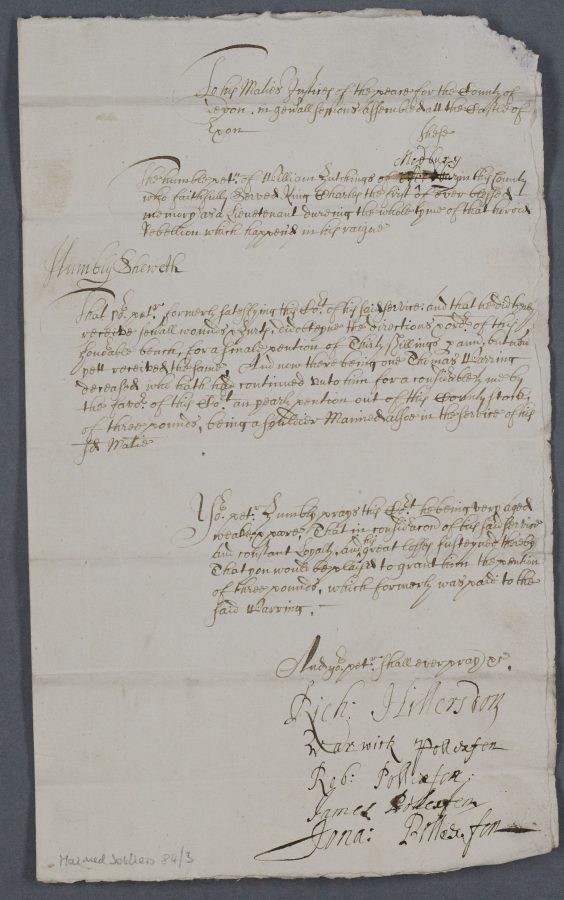 To his Maties Justices of the peace for the County of
Devon, in gen'all sessions assembled att the Castle of
Exon
These
Modbury
The humble pet: of William Hutchings of in this County
who faithfully served King Charles the first of ever blessed
memory as a Lieutenant dureing the whole tyme of that
Rebellion which happen'd in his raigne
Humbly Sheweth
That yor petr formerly satesfying this Cort of his said service: and that he did then
receive sev'all wounds & hurts, did obteyne the directions & order of this
honorable bench, for a smale pention of Thirty shillings p ann, but
yett received the same, And now there being one Thomas Warring
deceased, who hath had continued unto him for a considerable tyme by
the favor of this Cort an yearly pention out of this County stock,
of three pounds, being a souldier Maimed alsoe in the service of his
sd Matie
Yor petr humbly prays this Cort he being very aged
weake & poore, That in consideracon of his said service
and constant Loyalty, and his great losses susteyned thereby
That you would be pleased to grant him the pention
of three pounds, which formerly was paid to the
said Warring.
And yor petr shall ever pray &c.
Rich: Hillersdon
Warwick Pollexfen
Rob: Pollexfen
James Pollexfen
Jona: Pollexfen
Maimed Soldiers 84/3